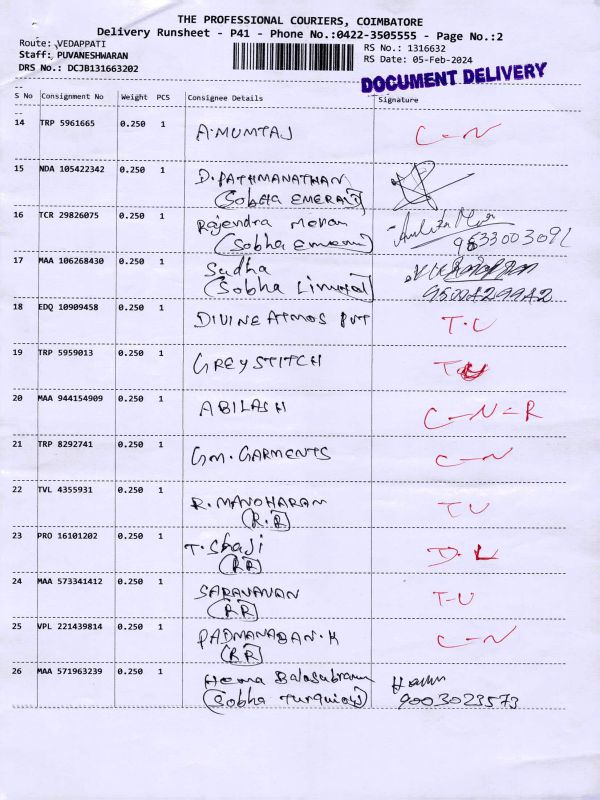 THE PROFESSIONAL COURIERS, COIMBATORE
Delivery Runsheet - P41 - Phone No.:0422-3505555 - Page No.:2
Route: VEDAPPATI RS No.: 1316632
Staff: PUVANESHWARAN RS Date: 05-Feb-2024
DRS No.: DCJB131663202
DOCUMENT DELIVERY
S No Consignment No Weight PCS Consignee Details Signature
14 TRP 5961665 0.250 1 A.MUMTAJ C-N
15 NDA 105422342 0.250 1 D.PATHMANATHAN
(Sobha EMERALD)
16 TCR 29826075 0.250 1 Rajendra Moran
(Sobha Emerald) 9833003091
17 MAA 106268430 0.250 1 Sudha
(Sobha Limited)
18 EDQ 10909458 0.250 1 DIVINE ATMOS PVT T.U
19 TRP 5959013 0.250 1 GREYSTITCH T.U
20 MAA 944154909 0.250 1 ABILASH C-N-R
21 TRP 8292741 0.250 1 GM.GARMENTS C-N
22 TVL 4355931 0.250 1 R.MANOHARAN T U
(R.R)
23 PRO 16101202 0.250 1 T.Shaji D.L
(RR)
24 MAA 573341412 0.250 1 SARAVANAN T-U
(RR)
25 VPL 221439814 0.250 1 PADMANABAN.K C-N
(RR)
26 MAA 571963239 0.250 1 Hema Balasubram
(Sobha Turquiois) 9003023573